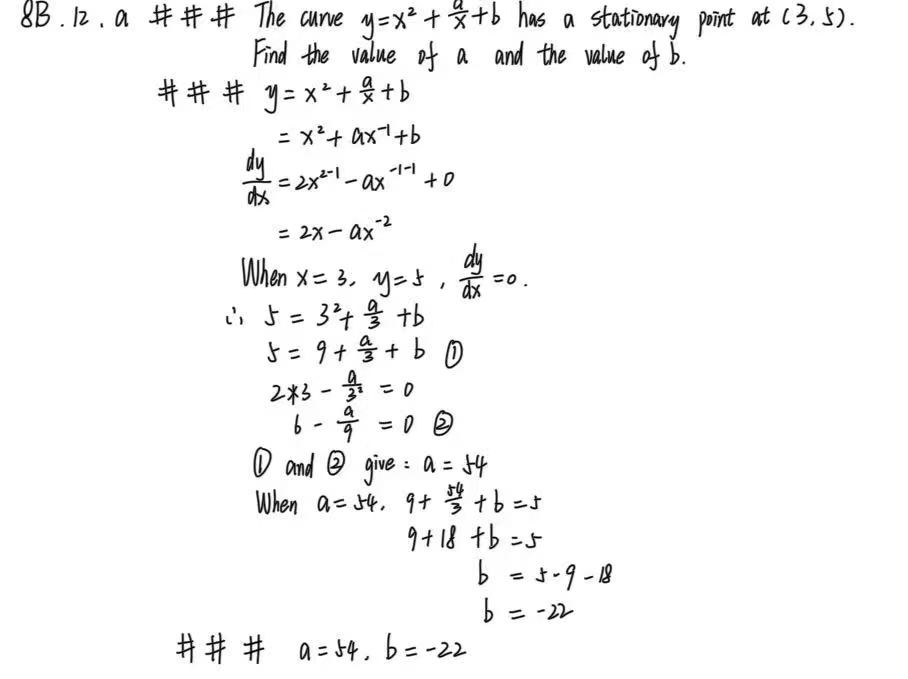 8B.12.a ### The curve y=x²+a/x+b has a stationary point at (3,5).
Find the value of a and the value of b.
### y=x²+a/x+b
=x²+ax⁻¹+b
dy/dx=2x²⁻¹-ax⁻¹⁻¹+0
=2x-ax⁻²
When x=3, y=5, dy/dx=0.
∴ 5=3²+a/3+b
5=9+a/3+b ①
2*3-a/3²=0
6-a/9=0 ②
① and ② give: a=54
When a=54, 9+54/3+b=5
9+18+b=5
b=5-9-18
b=-22
### a=54, b=-22